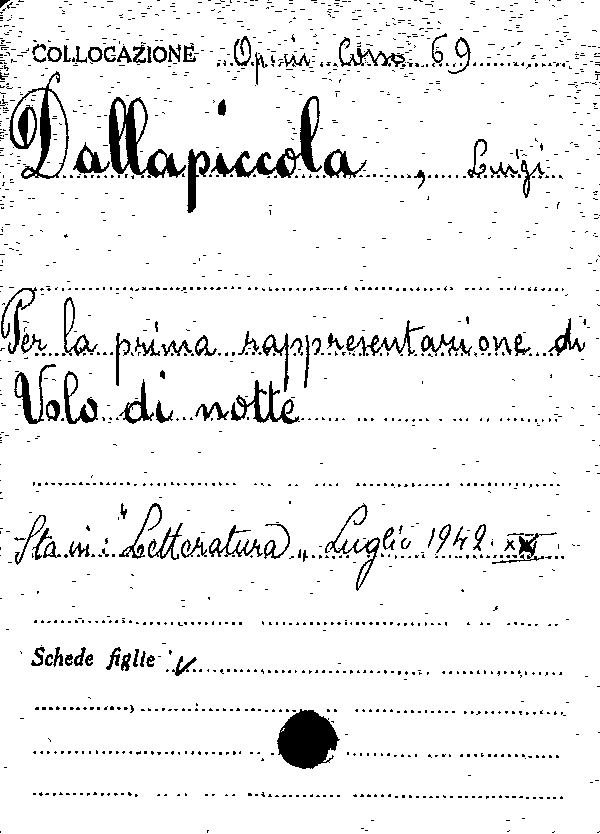 COLLOCAZIONE Op. in Corso 69
Dallapiccola, Luigi
Per la prima rappresentazione di
Volo di notte
Sta in: "Letteratura" Luglio 1942.
Schede figlie